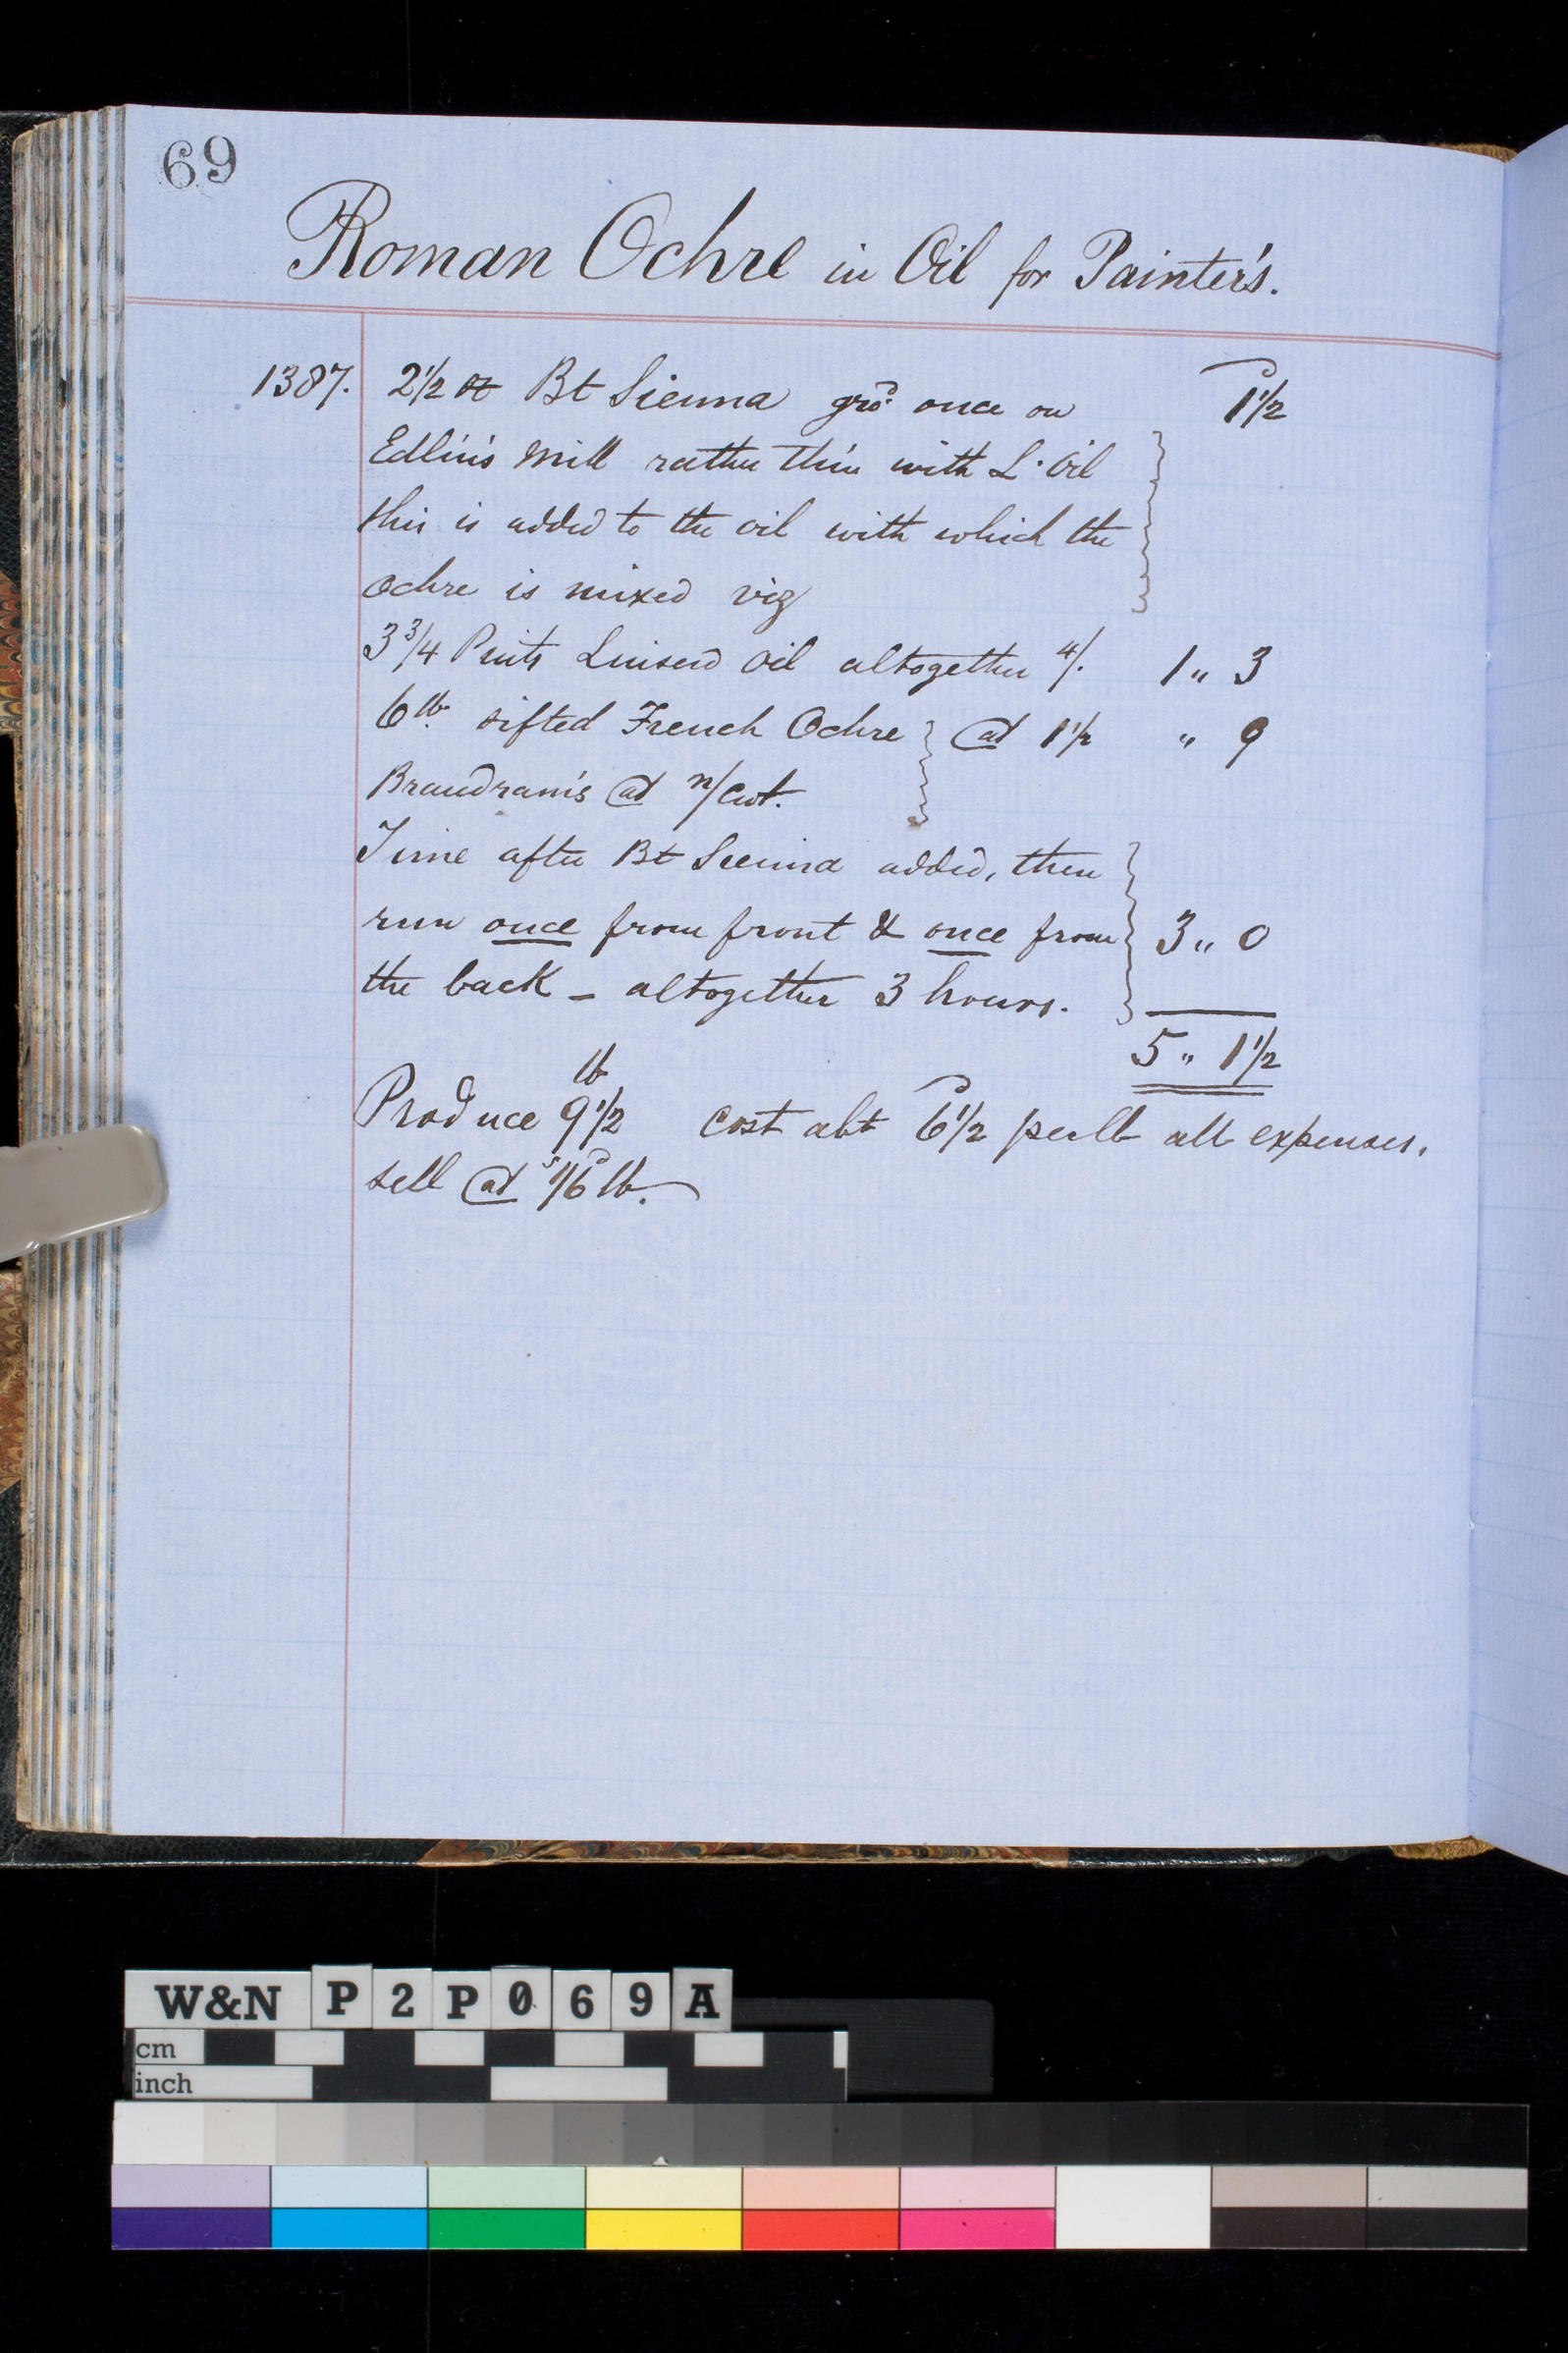 69
Roman Ochre in Oil for Painter's.
1387. 2 1/2 oz Bt Sienna grd. once on 1 1/2 d
Edlin's Mill rather thin with L. Oil
this is added to the oil with which the
Ochre is mixed viz
3 3/4 Pints Linseed Oil altogether 4/. 1 " 3
6 lb. sifted French Ochre @ 1 1/2 " 9
Brandram's @ /Cwt.
Time after Bt Sienna added, then
run once from front & once from 3 " 0
the back - altogether 3 hours.
5 " 1 1/2
Produce 9 1/2 lb cost abt 6 1/2 d per lb all expenses.
sell @ 1s/6d lb.
W&N P2P069A
cm
inch